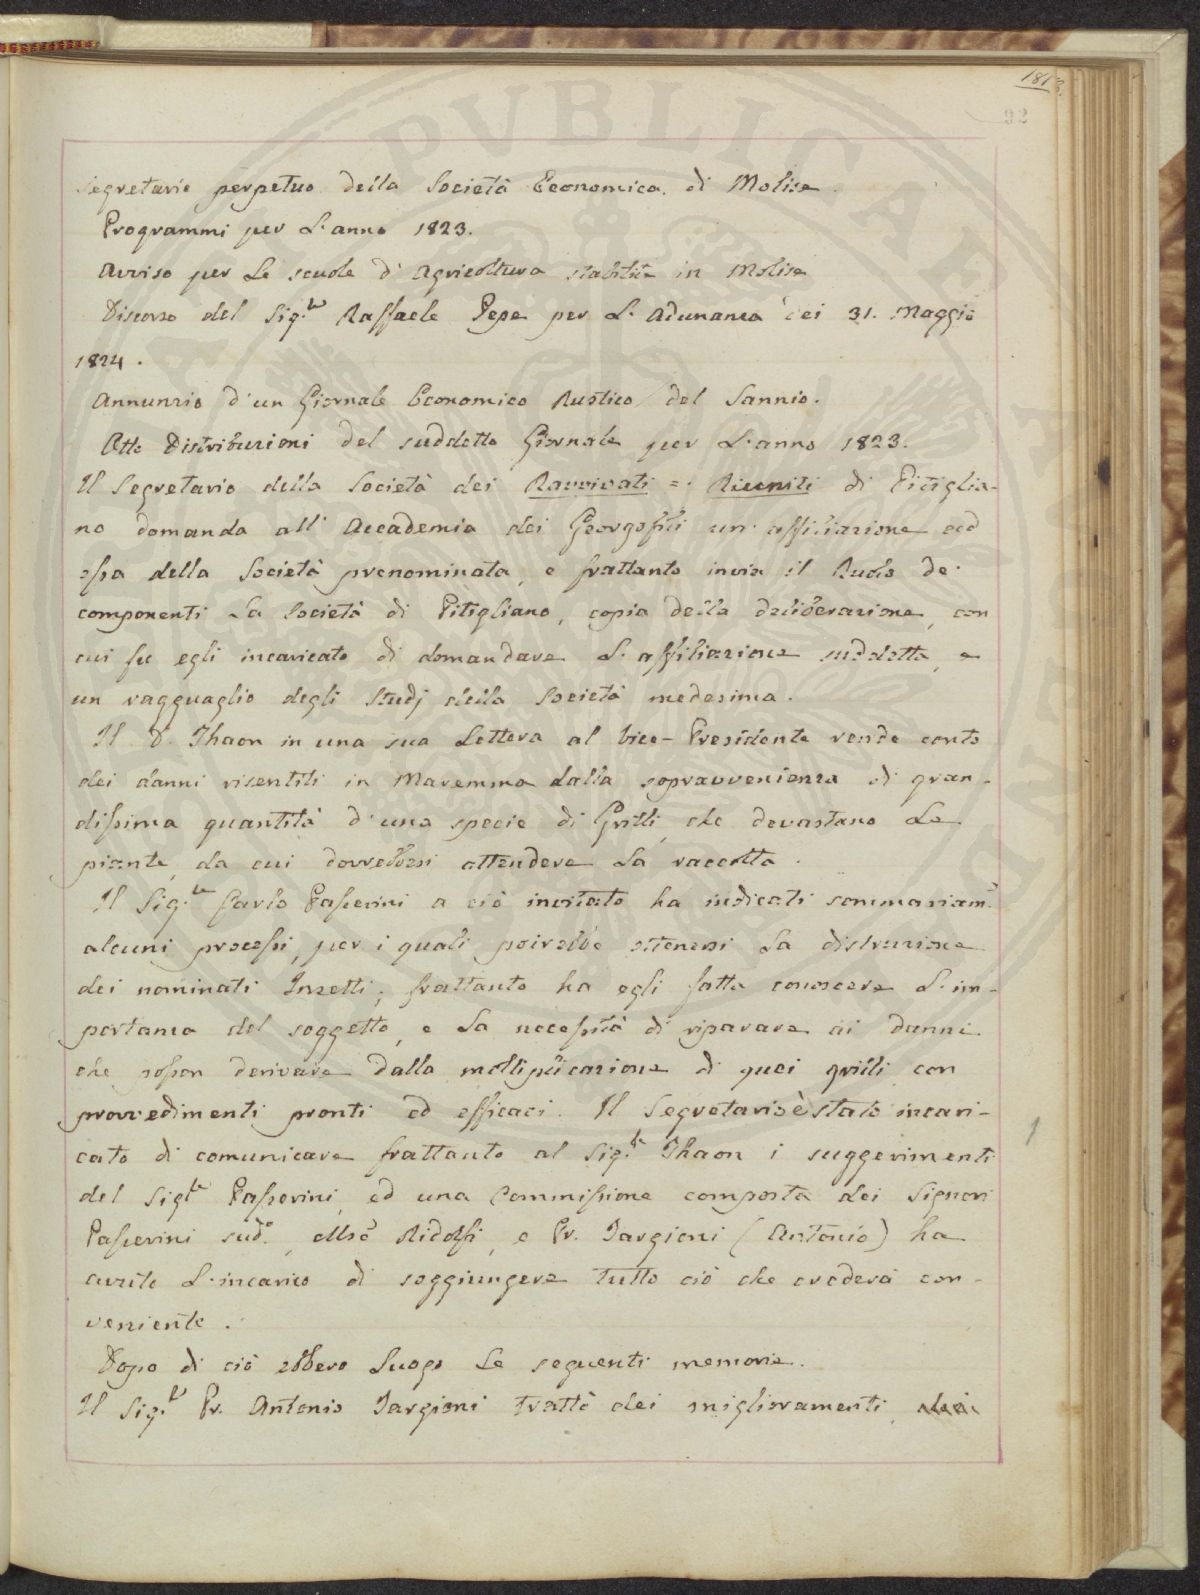 1813.
92
Segretario perpetuo della Società Economica di Molise.
Programmi per l'anno 1823.
Avviso per le scuole d'Agricoltura stabilite in Molise
Discorso del Sig.re Raffaele Pepe per l'Adunanza dei 31. Maggio
1824.
Annunzio d'un Giornale Economico Rustico del Sannio.
Otto Distribuzioni del suddetto Giornale per l'anno 1823.
Il Segretario della Società dei Ravvivati =: Riuniti di Pitiglia-
no domanda all'Accademia dei Georgofili un'affiliazione ad
essa della Società prenominata, e frattanto invia il Ruolo de'
componenti la Società di Pitigliano, copia della deliberazione, con
cui fu egli incaricato di domandare l'affiliazione suddetta, e
un ragguaglio degli Studj della Società medesima.
Il D. Thaon in una sua Lettera al Vice-Presidente rende conto
dei danni risentiti in Maremma dalla sopravvenienza di gran-
dissima quantità d'una specie di Grilli, che devastano le
piante, da cui dovrebbesi attendere la raccolta.
Il Sig.re Carlo Passerini a ciò invitato ha indicati sommariam.e
alcuni processi, per i quali potrebbe ottenersi la distruzione
dei nominati Insetti; frattanto ha egli fatta conoscere l'im-
portanza del soggetto, e la necessità di riparare ai danni
che posson derivare dalla moltiplicazione di quei grilli con
provvedimenti pronti ed efficaci. Il Segretario è stato incari-
cato di comunicare frattanto al Sig.re Thaon i suggerimenti
del Sig.re Passerini, ed una Commissione composta dei Signori
Passerini sud.o, Ridolfi, e Pr. Targioni (Antonio) ha
avuto l'incarico di soggiungere tutto ciò che crederà con-
veniente.
Dopo di ciò ebbero luogo le seguenti memorie.
Il Sig.re Pr. Antonio Targioni trattò dei miglioramenti,